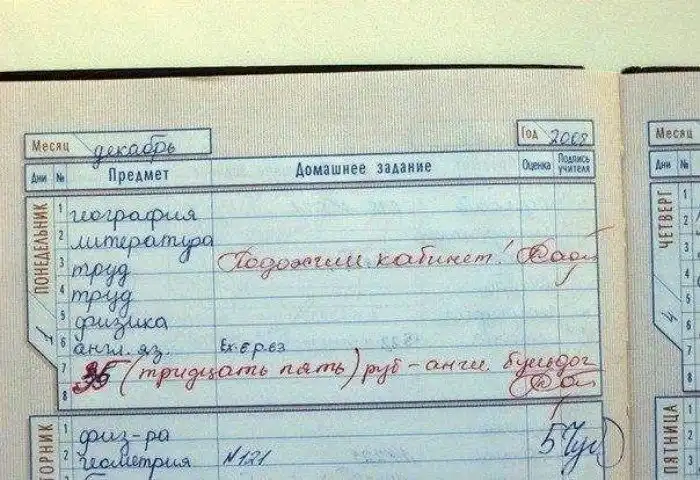 Месяц декабрь Год 2008
Дни № Предмет Домашнее задание Оценка Подпись учителя
ПОНЕДЕЛЬНИК 1
1 география
2 литература
3 труд Подожгли кабинет!
4 труд
5 физика
6 англ. яз. Ex. 6 p. 63
7 35 (тридцать пять) руб - англ. бульдог
8
ТОРНИК
1 физ-ра 5
2 геометрия №121
Месяц
Дни №
ЧЕТВЕРГ 4
1
2
3
4
5
6
7
8
ПЯТНИЦА
1
2
3
4